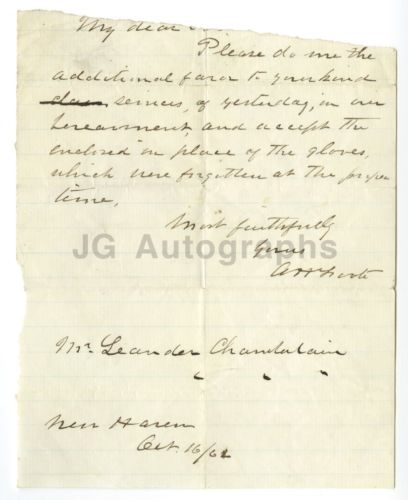 My dear
Please do me the
additional favor to your kind
services, of yesterday, in our
bereavment, and accept the
enclosed in place of the gloves,
which were forgotten at the proper
time,
Most faithfully
Yours
A H Foote
JG Autographs
Mr. Leander Chamberlain
New Haven
Oct. 16/62